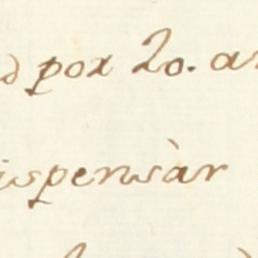 por 20. an
ispensàr